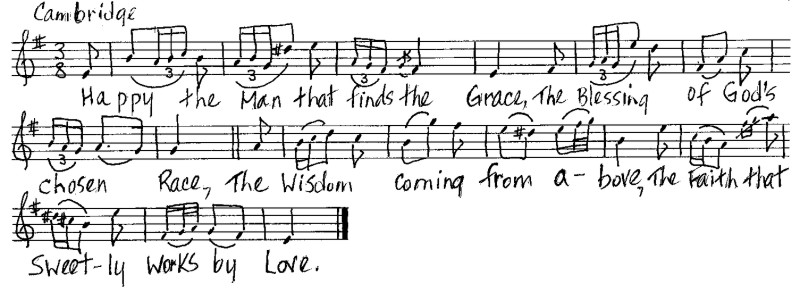 Cambridge
3 8
3 3 3 3
Happy the Man that finds the Grace, The Blessing of God's
3
chosen Race, The Wisdom coming from a- bove, The Faith that
Sweet-ly works by Love.